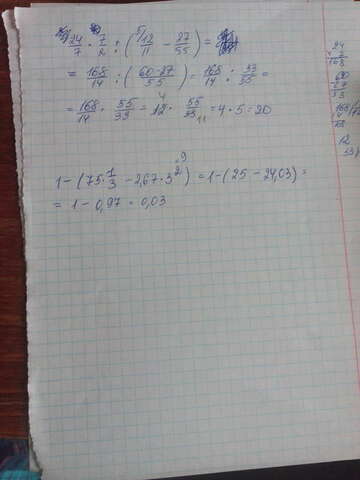 24/7 · 7/2 : (5/12/11 - 27/55) =
= 168/14 : (60-27/55) = 168/14 : 33/55 =
= 168/14 · 55/33 = 12 4 · 55/33 11 = 4 · 5 = 20
1 - (75 · 1/3 - 2,67 · 3² 9) = 1 - (25 - 24,03) =
= 1 - 0,97 = 0,03
24
168
60
27
33
168
14
12